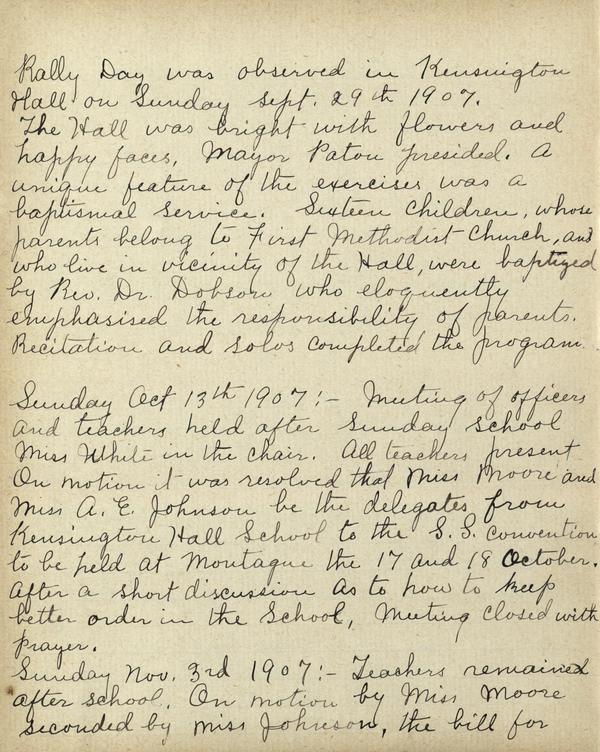 Rally Day was observed in Kensington
Hall on Sunday Sept. 29th 1907.
The Hall was bright with flowers and
happy faces, Mayor Paton presided. A
unique feature of the exercises was a
baptismal service. Sixteen children, whose
parents belong to First Methodist Church, and
who live in vicinity of the Hall, were baptized
by Rev. Dr. Dobson who eloquently
emphasised the responsibility of parents.
Recitation and solos completed the program.
Sunday Oct 13th 1907:- Meeting of officers
and teachers held after Sunday school
Miss White in the chair. All teachers present
On motion it was resolved that Miss Moore and
Miss A. E. Johnson be the delegates from
Kensington Hall School to the S.S. convention
to be held at Montague the 17 and 18 October.
After a short discussion as to how to keep
better order in the School, Meeting closed with
prayer.
Sunday Nov. 3rd 1907:- Teachers remained
after school. On motion by Miss Moore
seconded by Miss Johnson, the bill for